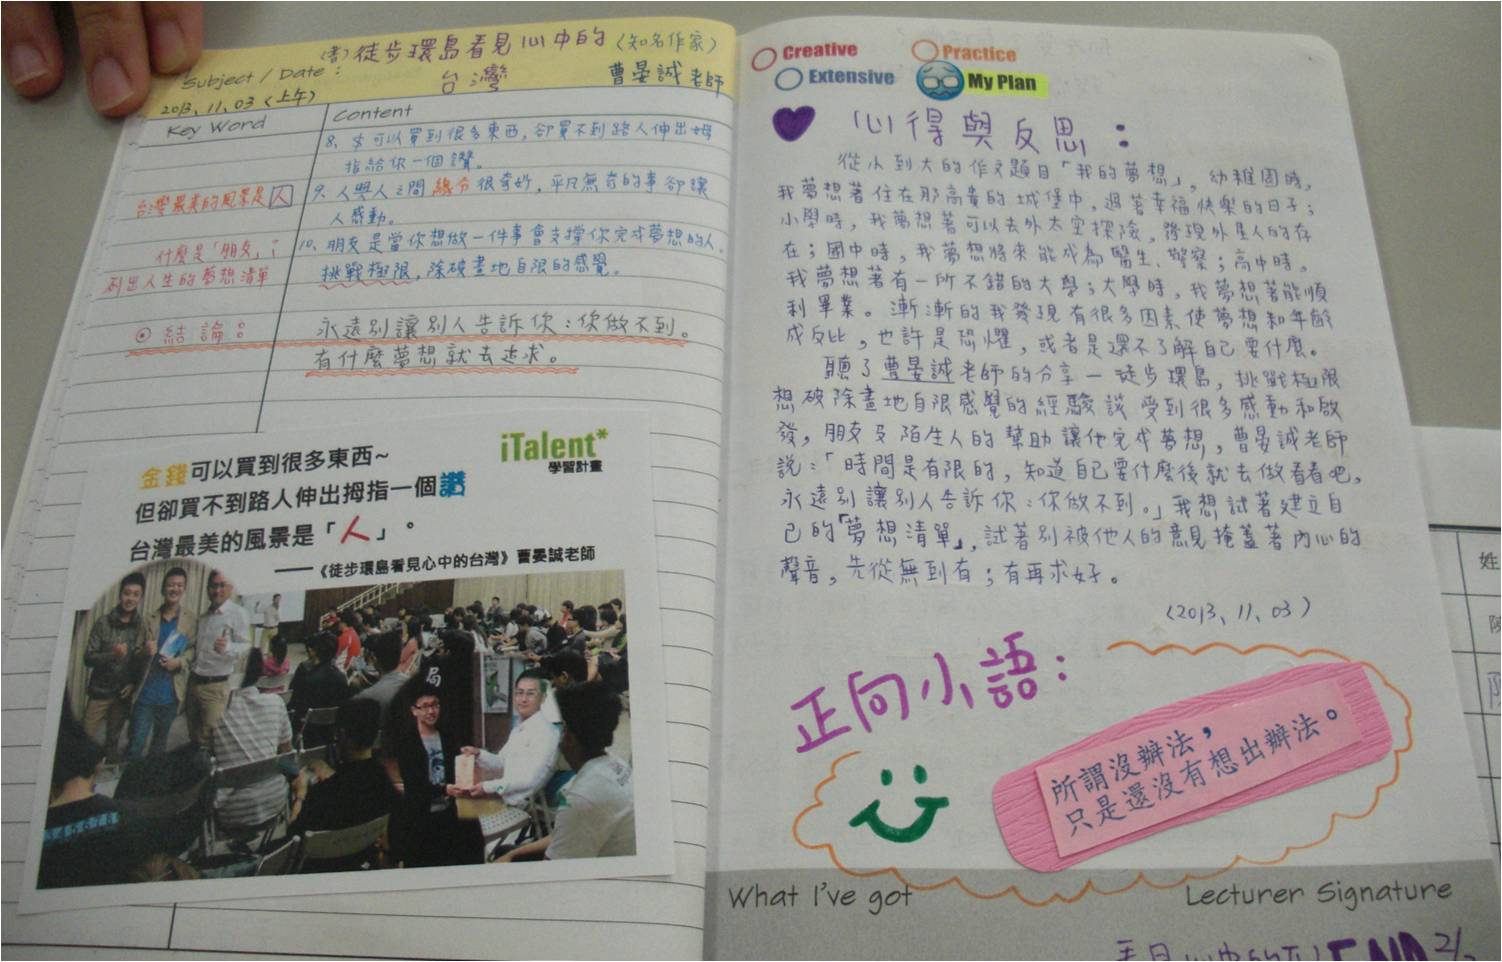 (書)徒步環島看見心中的(知名作家)
Subject / Date :
台灣
曹晏誠老師
2013、11、03(上午)
Key Word
Content
8、$可以買到很多東西,卻買不到路人伸出姆
指給你一個讚。
台灣最美的風景是人
9、人與人之間緣分很奇妙,平凡無奇的事卻讓
人感動。
什麼是「朋友」?
10、朋友是當你想做一件事會支撐你完成夢想的人。
列出人生的夢想清單
挑戰極限,除破畫地自限的感覺。
⊙結論:
永遠別讓別人告訴你:你做不到。
有什麼夢想就去追求。
iTalent*
學習計畫
金錢可以買到很多東西~
但卻買不到路人伸出拇指一個讚
台灣最美的風景是「人」。
——《徒步環島看見心中的台灣》曹晏誠老師
局
345678
Creative
Practice
Extensive
My Plan
心得與反思:
從小到大的作文題目「我的夢想」,幼稚園時,
我夢想著住在那高貴的城堡中,過著幸福快樂的日子;
小學時,我夢想著可以去外太空探險,發現外星人的存
在;國中時,我夢想將來能成為醫生、警察;高中時,
我夢想著有一所不錯的大學;大學時,我夢想著能順
利畢業。漸漸的我發現有很多因素使夢想和年齡
成反比,也許是恐懼,或者是還不了解自己要什麼。
聽了曹晏誠老師的分享—徒步環島,挑戰極限
想破除畫地自限感覺的經驗談受到很多感動和啟
發,朋友及陌生人的幫助讓他完成夢想,曹晏誠老師
說:「時間是有限的,知道自己要什麼後就去做看看吧,
永遠別讓別人告訴你:你做不到。」我想試著建立自
己的「夢想清單」,試著別被他人的意見掩蓋著內心的
聲音,先從無到有;有再求好。
(2013、11、03)
正向小語:
所謂沒辦法,
只是還沒有想出辦法。
What I've got
Lecturer Signature
END
姓